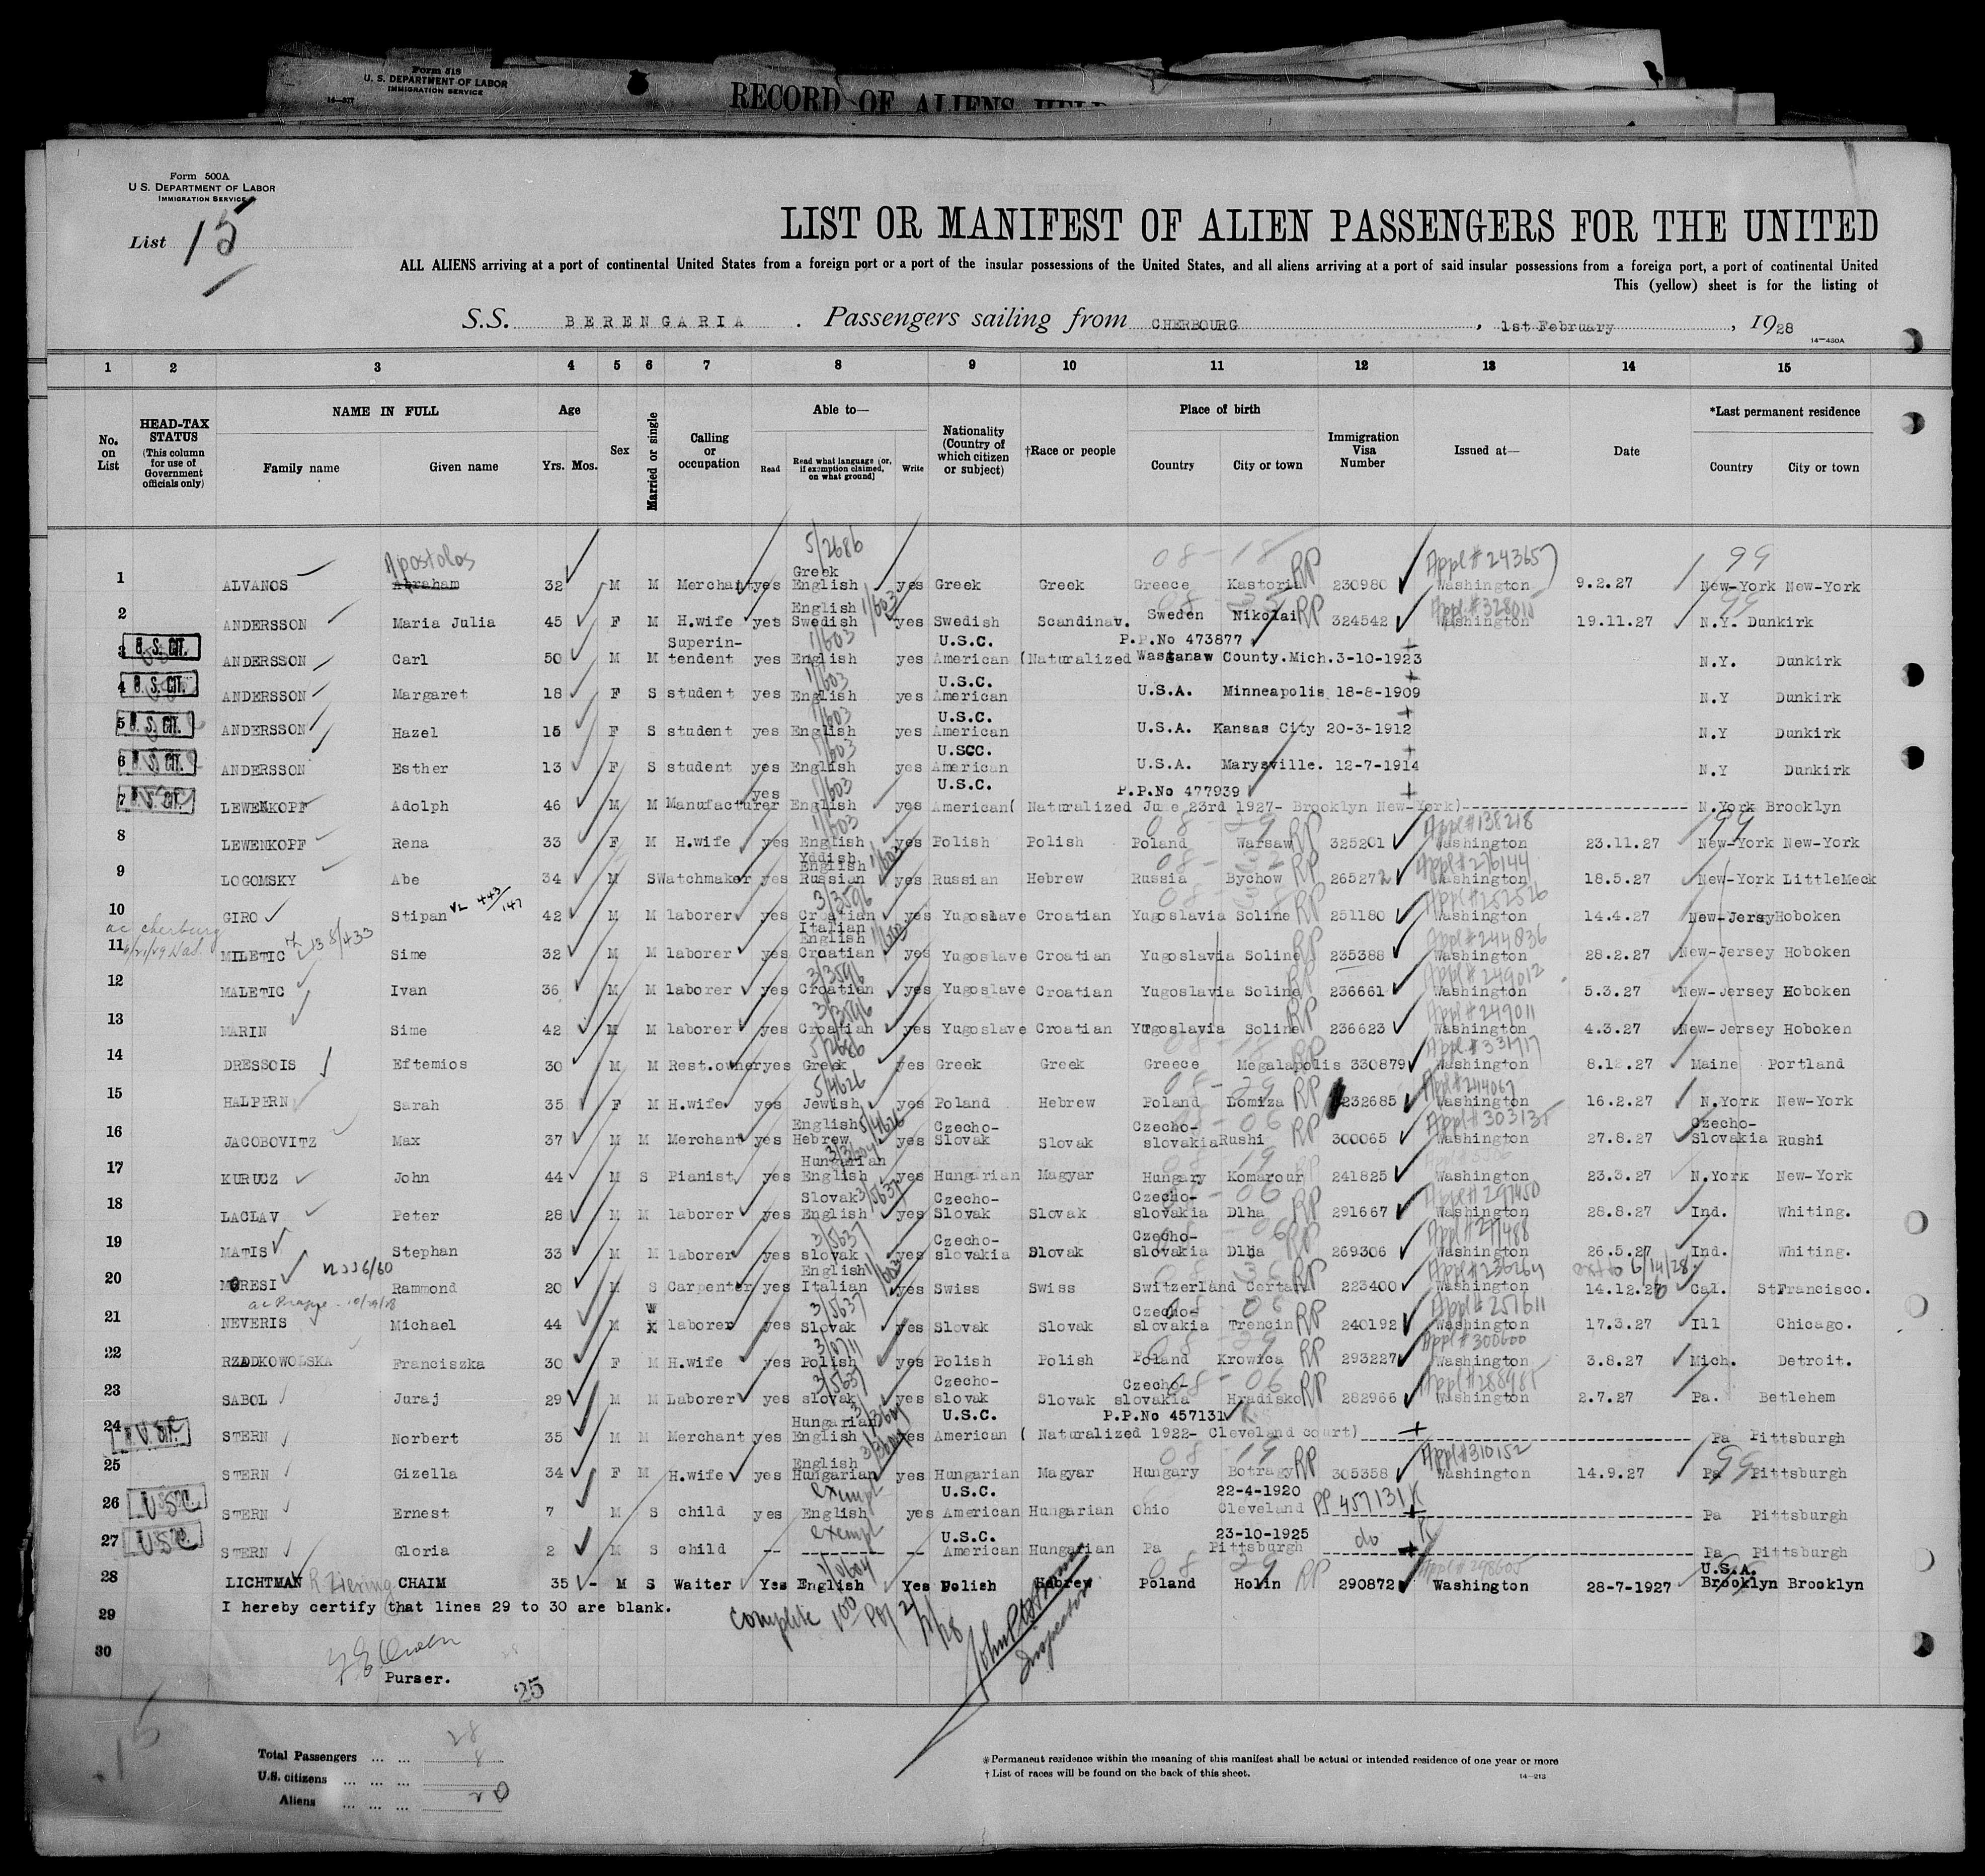 Form 518
U. S. DEPARTMENT OF LABOR
IMMIGRATION SERVICE
14—577
RECORD OF ALIENS HELD
Form 500A
U. S. DEPARTMENT OF LABOR
IMMIGRATION SERVICE
List 15
LIST OR MANIFEST OF ALIEN PASSENGERS FOR THE UNITED
ALL ALIENS arriving at a port of continental United States from a foreign port or a port of the insular possessions of the United States, and all aliens arriving at a port of said insular possessions from a foreign port, a port of continental United
This (yellow) sheet is for the listing of
S.S. BERENGARIA . Passengers sailing from CHERBOURG , 1st February , 1928
14—430A
1 2 3 4 5 6 7 8 9 10 11 12 13 14 15
No. on List
HEAD-TAX STATUS (This column for use of Government officials only)
NAME IN FULL
Family name Given name
Age
Yrs. Mos.
Sex
Married or single
Calling or occupation
Able to—
Read Read what language (or, if exemption claimed, on what ground) Write
Nationality (Country of which citizen or subject)
†Race or people
Place of birth
Country City or town
Immigration Visa Number
Issued at—
Date
*Last permanent residence
Country City or town
Apostolos 5/2686 08-18 Appl# 243657 99
1 ALVANOS Abraham 32 M M Merchant yes Greek English yes Greek Greek Greece Kastoria RP 230980 Washington 9.2.27 New-York New-York
2 ANDERSSON Maria Julia 45 F M H.wife yes English Swedish 1/603 yes Swedish Scandinav. Sweden Nikolai RP 324542 Appl# 328015 Washington 19.11.27 N.Y. Dunkirk
3 U. S. CIT. ANDERSSON Carl 50 M M Superintendent yes English 1/603 yes U.S.C. American (Naturalized P.P.No 473877 Wastanaw County.Mich. 3-10-1923 N.Y. Dunkirk
4 U. S. CIT. ANDERSSON Margaret 18 F S student yes English 1/603 yes U.S.C. American U.S.A. Minneapolis 18-8-1909 N.Y Dunkirk
5 U. S. CIT. ANDERSSON Hazel 15 F S student yes English 1/603 yes U.S.C. American U.S.A. Kansas City 20-3-1912 N.Y Dunkirk
6 U. S. CIT. ANDERSSON Esther 13 F S student yes English 1/603 yes U.SCC. American U.S.A. Marysville. 12-7-1914 N.Y Dunkirk
7 U. S. CIT. LEWENKOPF Adolph 46 M M Manufacturer yes English 1/603 yes U.S.C. American( Naturalized June 23rd 1927- Brooklyn New-York) P.P.No 477939 N.York Brooklyn
8 LEWENKOPF Rena 33 F M H.wife yes English 1/603 yes Polish Polish Poland Warsaw 08-29 RP 325201 Appl# 138218 Washington 23.11.27 99 New-York New-York
9 LOGOMSKY Abe 34 M S Watchmaker yes Yddish English Russian yes Russian Hebrew Russia Bychow RP 265272 Appl# 276144 Washington 18.5.27 New-York LittleMeck
10 GIRO Stipan 42 M M laborer yes Croatian 3/3596 yes Yugoslave Croatian Yugoslavia Soline RP 251180 Appl# 252526 Washington 14.4.27 New-Jersy Hoboken
11 MILETIC Sime 32 M M laborer yes Italian English Croatian yes Yugoslave Croatian Yugoslavia Soline RP 235388 Appl# 244836 Washington 28.2.27 New-Jersey Hoboken
12 MALETIC Ivan 36 M M laborer yes Croatian 3/3596 yes Yugoslave Croatian Yugoslavia Soline RP 236661 Appl# 249012 Washington 5.3.27 New-Jersey Hoboken
13 MARIN Sime 42 M M laborer yes Croatian 3/3596 yes Yugoslave Croatian Yugoslavia Soline RP 236623 Appl# 249011 Washington 4.3.27 New-Jersey Hoboken
14 DRESSOIS Eftemios 30 M M Rest.owner yes Greek 5/2686 yes Greek Greek Greece Megalapolis RP 330879 Appl# 331717 Washington 8.12.27 Maine Portland
15 HALPERN Sarah 35 F M H.wife yes Jewish 5/4626 yes Poland Hebrew Poland Lomiza 08-29 RP 232685 Appl# 244067 Washington 16.2.27 N.York New-York
16 JACOBOVITZ Max 37 M M Merchant yes English Hebrew 5/4626 yes Czecho-Slovak Slovak Czecho-slovakia Rushi 06 RP 300065 Appl# 303135 Washington 27.8.27 Czecho-Slovakia Rushi
17 KURUCZ John 44 M S Pianist yes Hungarian English 3/3604 yes Hungarian Magyar Hungary Komarour 08-19 241825 Washington 23.3.27 N.York New-York
18 LACLAV Peter 28 M M laborer yes Slovak English 3/5637 yes Czecho-Slovak Slovak Czecho-slovakia Dlha 06 RP 291667 Appl# 297450 Washington 28.8.27 Ind. Whiting.
19 MATIS Stephan 33 M M laborer yes slovak 3/5637 yes Czecho-slovakia Slovak Czecho-slovakia Dlha 06 RP 269306 Appl# 271488 Washington 26.5.27 Ind. Whiting.
20 MORESI Rammond 20 M S Carpenter yes English Italian yes Swiss Swiss Switzerland Certara RP 223400 Appl# 236264 Washington 14.12.26 ext to 6/14/28 Cal. StFrancisco.
21 NEVERIS Michael 44 M W laborer yes Slovak 3/5637 yes Slovak Slovak Czecho-slovakia Trencin 08-06 RP 240192 Appl# 251611 Washington 17.3.27 Ill Chicago.
22 RZADKOWOLSKA Franciszka 30 F M H.wife yes Polish yes Polish Polish Poland Krowica 08-29 RP 293227 Appl# 300600 Washington 3.8.27 Mich. Detroit.
23 SABOL Juraj 29 M M Laborer yes slovak 3/5637 yes Czecho-slovak Slovak Czecho-slovakia Hradisko 08-06 RP 282966 Appl# 288985 Washington 2.7.27 Pa. Betlehem
24 STERN Norbert 35 M M Merchant yes Hungarian English 3/3604 yes U.S.C. American ( Naturalized 1922- Cleveland court) P.P.No 457131 Pa Pittsburgh
25 STERN Gizella 34 F M H.wife yes English Hungarian 3/3604 yes Hungarian Magyar Hungary Botragy 08-19 RP 305358 Appl# 310152 Washington 14.9.27 99 Pa Pittsburgh
26 USC STERN Ernest 7 M S child yes exempt English yes U.S.C. American Hungarian Ohio 22-4-1920 Cleveland PP 457131 Pa Pittsburgh
27 USC STERN Gloria 2 M S child -- exempt -- U.S.C. American Hungarian Pa 23-10-1925 Pittsburgh do Pa Pittsburgh
28 LICHTMAN R Ziering CHAIM 35 - M S Waiter Yes English 1/0604 Yes Polish Hebrew Poland Holin 08 29 RP 290872 Appl# 298605 Washington 28-7-1927 U.S.A. Brooklyn Brooklyn
29 I hereby certify that lines 29 to 30 are blank.
Complete
Inspector
30
Purser.
25
15
Total Passengers ... ... 28
U.S. citizens ... ... ... 8
Aliens ... ... ... 20
*Permanent residence within the meaning of this manifest shall be actual or intended residence of one year or more
† List of races will be found on the back of this sheet.
14—213